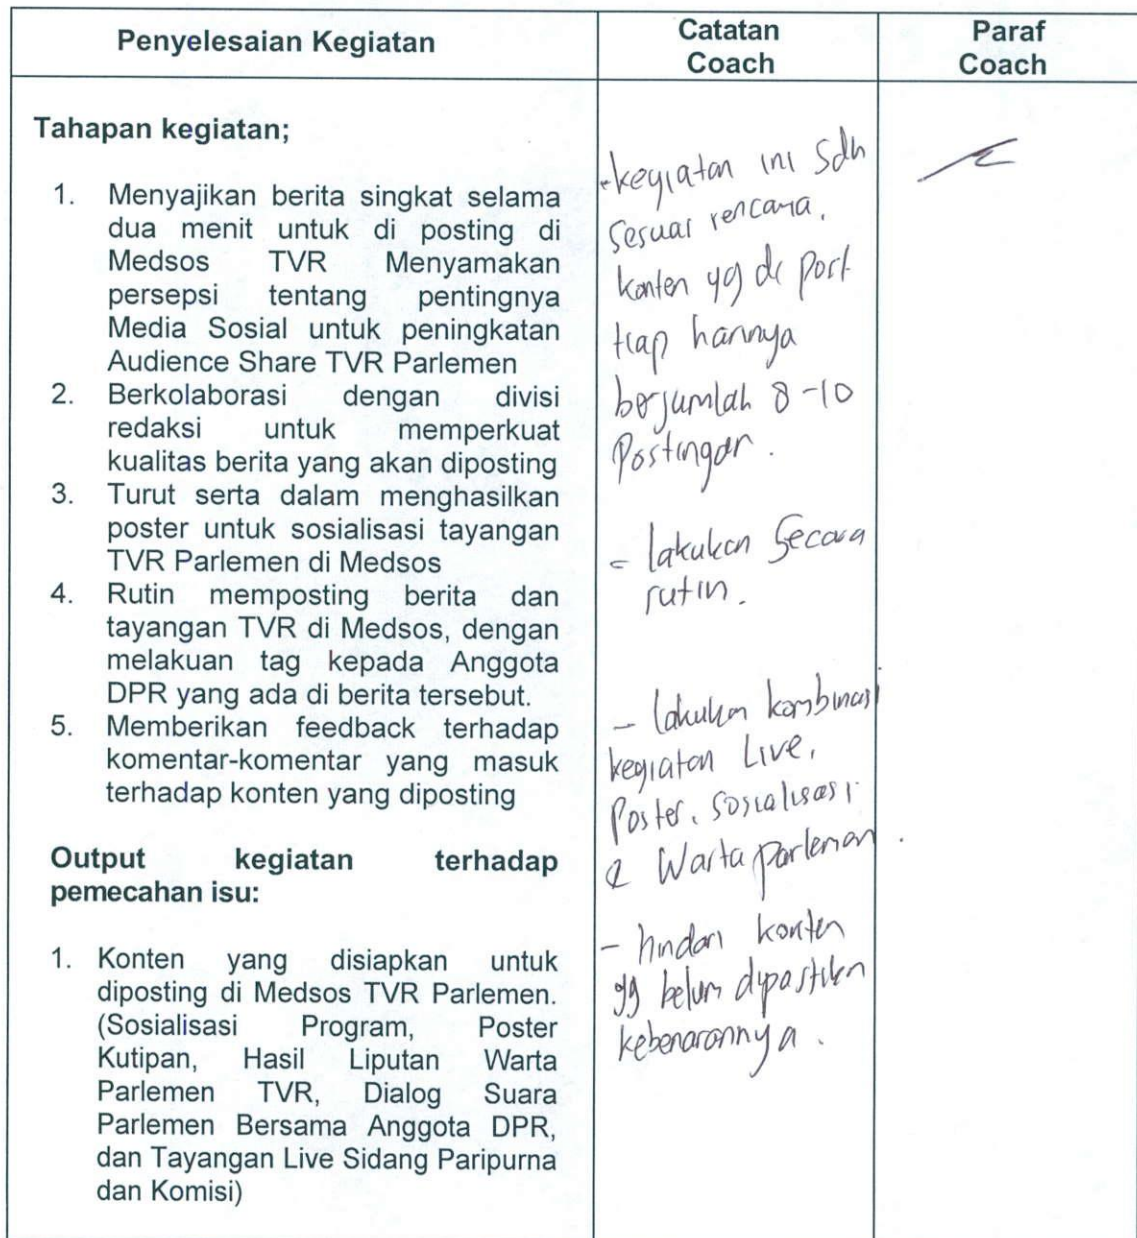 Penyelesaian Kegiatan
Catatan
Coach
Paraf
Coach
Tahapan kegiatan;
1. Menyajikan berita singkat selama
dua menit untuk di posting di
Medsos TVR Menyamakan
persepsi tentang pentingnya
Media Sosial untuk peningkatan
Audience Share TVR Parlemen
2. Berkolaborasi dengan divisi
redaksi untuk memperkuat
kualitas berita yang akan diposting
3. Turut serta dalam menghasilkan
poster untuk sosialisasi tayangan
TVR Parlemen di Medsos
4. Rutin memposting berita dan
tayangan TVR di Medsos, dengan
melakuan tag kepada Anggota
DPR yang ada di berita tersebut.
5. Memberikan feedback terhadap
komentar-komentar yang masuk
terhadap konten yang diposting
Output kegiatan terhadap
pemecahan isu:
1. Konten yang disiapkan untuk
diposting di Medsos TVR Parlemen.
(Sosialisasi Program, Poster
Kutipan, Hasil Liputan Warta
Parlemen TVR, Dialog Suara
Parlemen Bersama Anggota DPR,
dan Tayangan Live Sidang Paripurna
dan Komisi)
- kegiatan ini sdh
sesuai rencana,
konten yg di post
tiap harinya
berjumlah 8-10
Postingan.
- lakukan secara
rutin.
- lakukan kombinasi
kegiatan Live,
Poster, sosialisasi
& Warta parlemen.
- hindari konten
yg belum dipastikan
kebenarannya.